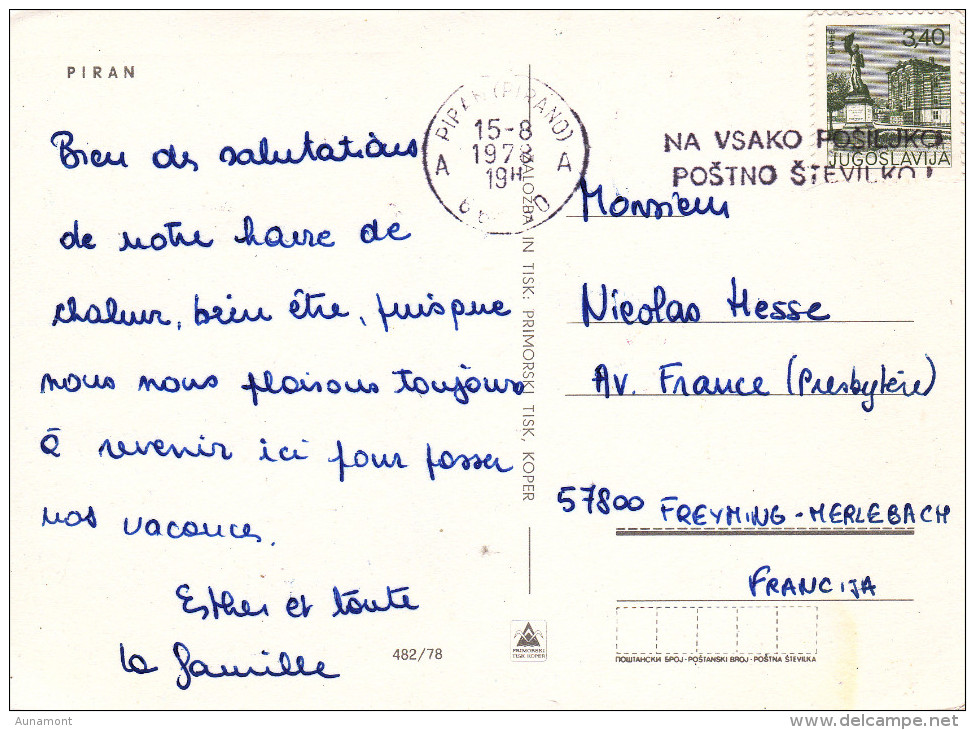 PIRAN
Bien des salutations
de notre havre de
chaleur, bien être, puisque
nous nous plaisons toujours
à revenir ici pour passer
nos vacances.
Esther et toute
la famille
482/78
ZALOŽBA IN TISK: PRIMORSKI TISK, KOPER
PRIMORSKI
TISK KOPER
PIRAN (PIRANO)
15-8
1978
19H
A A
NA VSAKO POŠILJKO
POŠTNO ŠTEVILKO!
3,40
JUGOSLAVIJA
Monsieur
Nicolas Hesse
Av. France (Presbytère)
57800 FREYMING-MERLEBACH
FRANCIJA
ПОШТАНСКИ БРОЈ-POŠTANSKI BROJ-POŠTNA ŠTEVILKA
Aunamont
delcampe.net